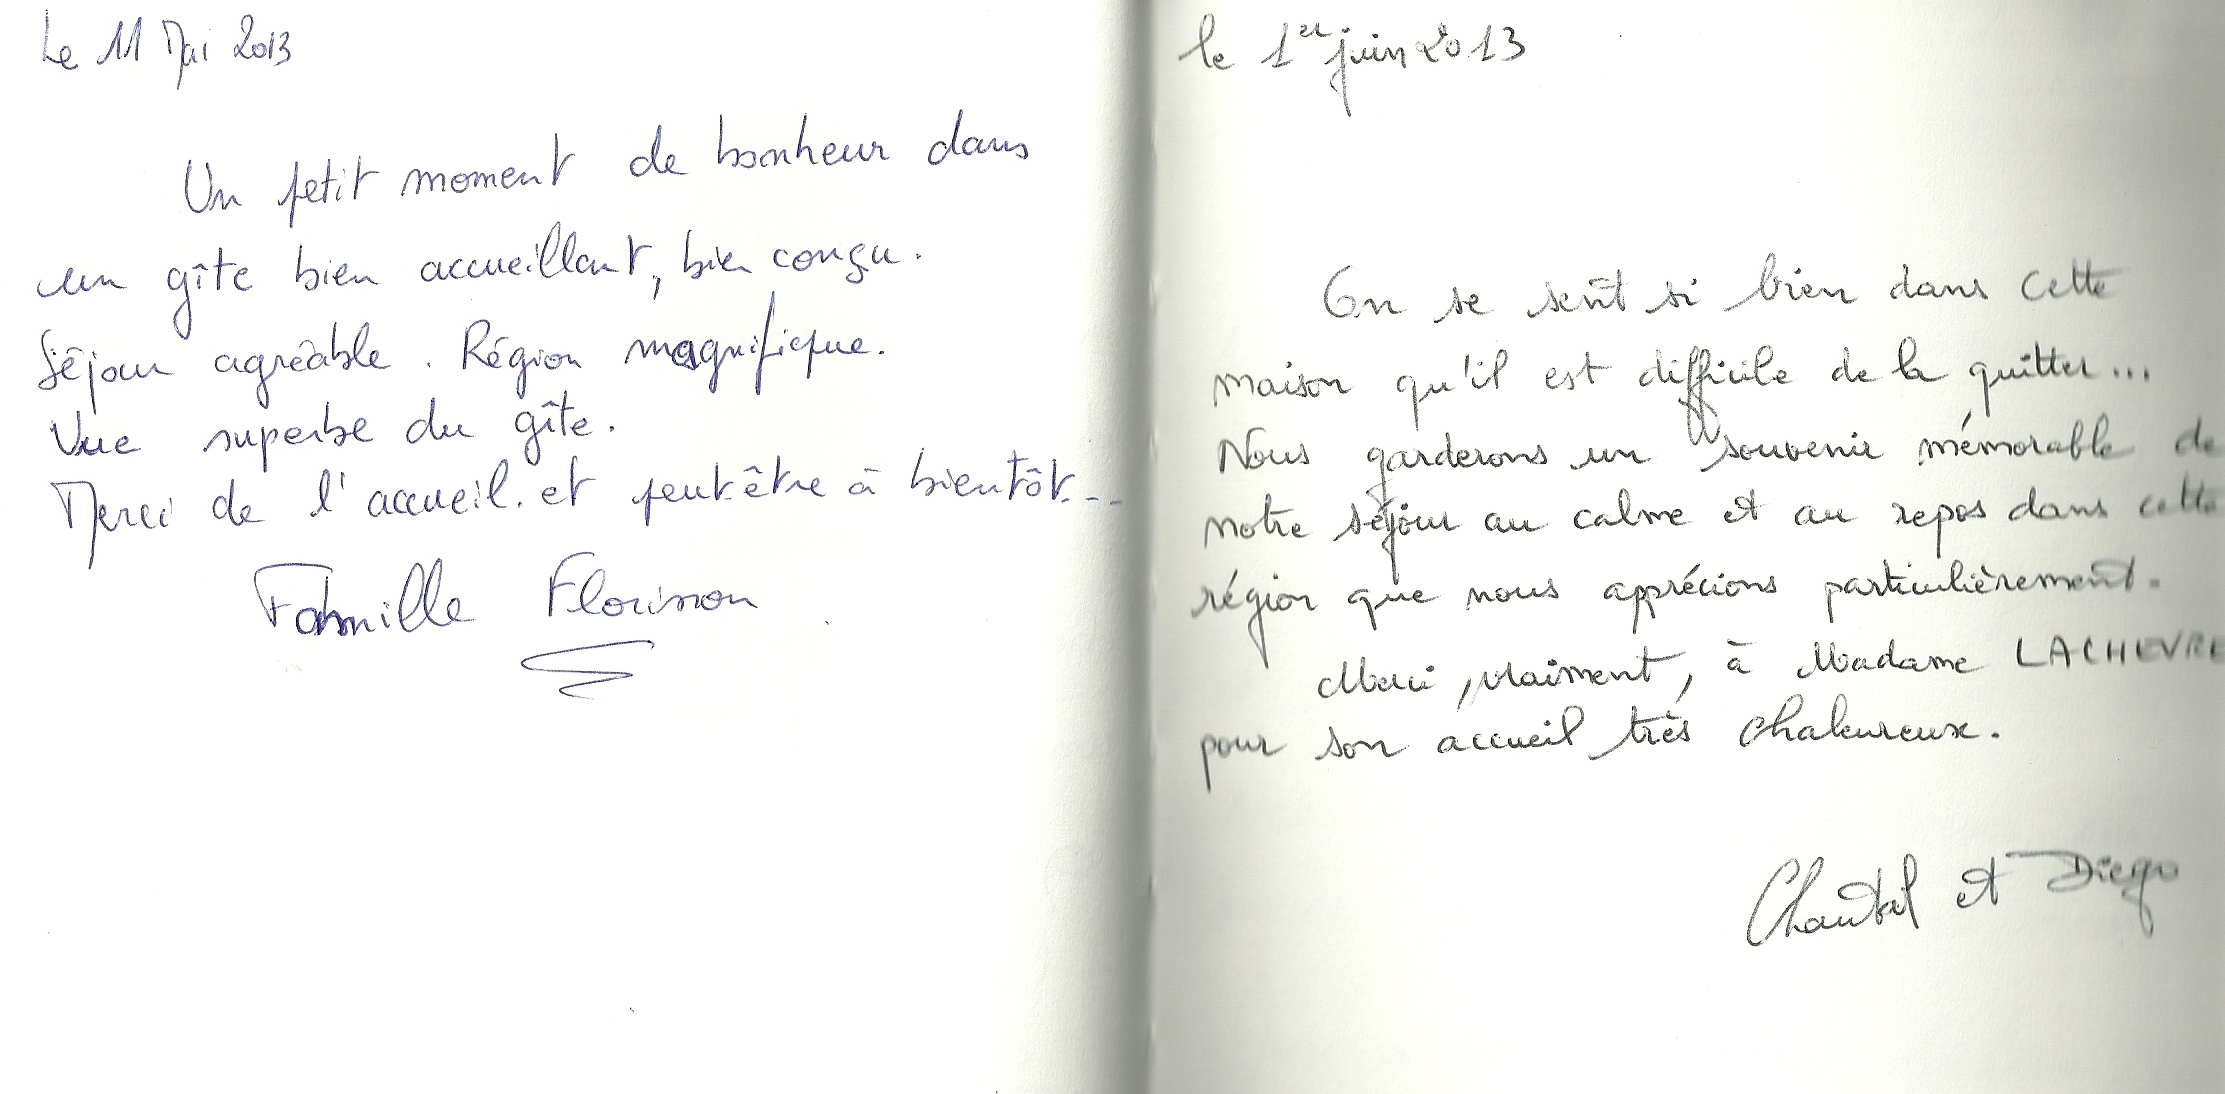 Le 11 Mai 2013
Un petit moment de bonheur dans
un gîte bien accueillant, bien conçu.
Séjour agréable. Région magnifique.
Vue superbe du gîte.
Merci de l'accueil. et peut-être à bientôt...
Famille
le 1er juin 2013
On se sent si bien dans cette
maison qu'il est difficile de la quitter...
Nous garderons un souvenir mémorable de
notre séjour au calme et au repos dans cette
région que nous apprécions particulièrement.
Merci, vraiment, à Madame LACHEVRE
pour son accueil très chaleureux.
Chantal et Diego